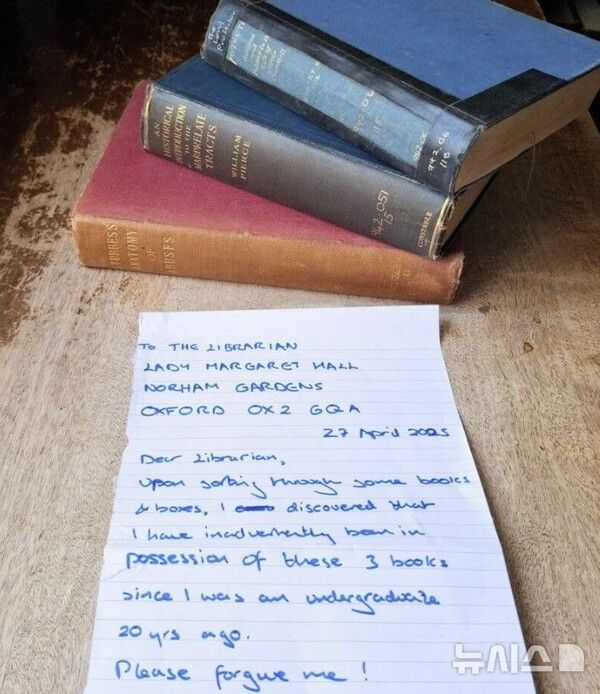 AN
HISTORICAL
INTRODUCTION
TO THE
MARPRELATE
TRACTS
WILLIAM
PIERCE
942.051
15
CONSTABLE
942.06
115
942.06
118
STUBBES'S
ANATOMY
OF
ABUSES
TO THE LIBRARIAN
LADY MARGARET HALL
NORHAM GARDENS
OXFORD OX2 6QA
27 April 2025
Dear Librarian,
Upon sorting through some books
& boxes, I discovered that
I have inadvertently been in
possession of these 3 books
since I was an undergraduate
20 yrs ago.
Please forgive me!
뉴시스